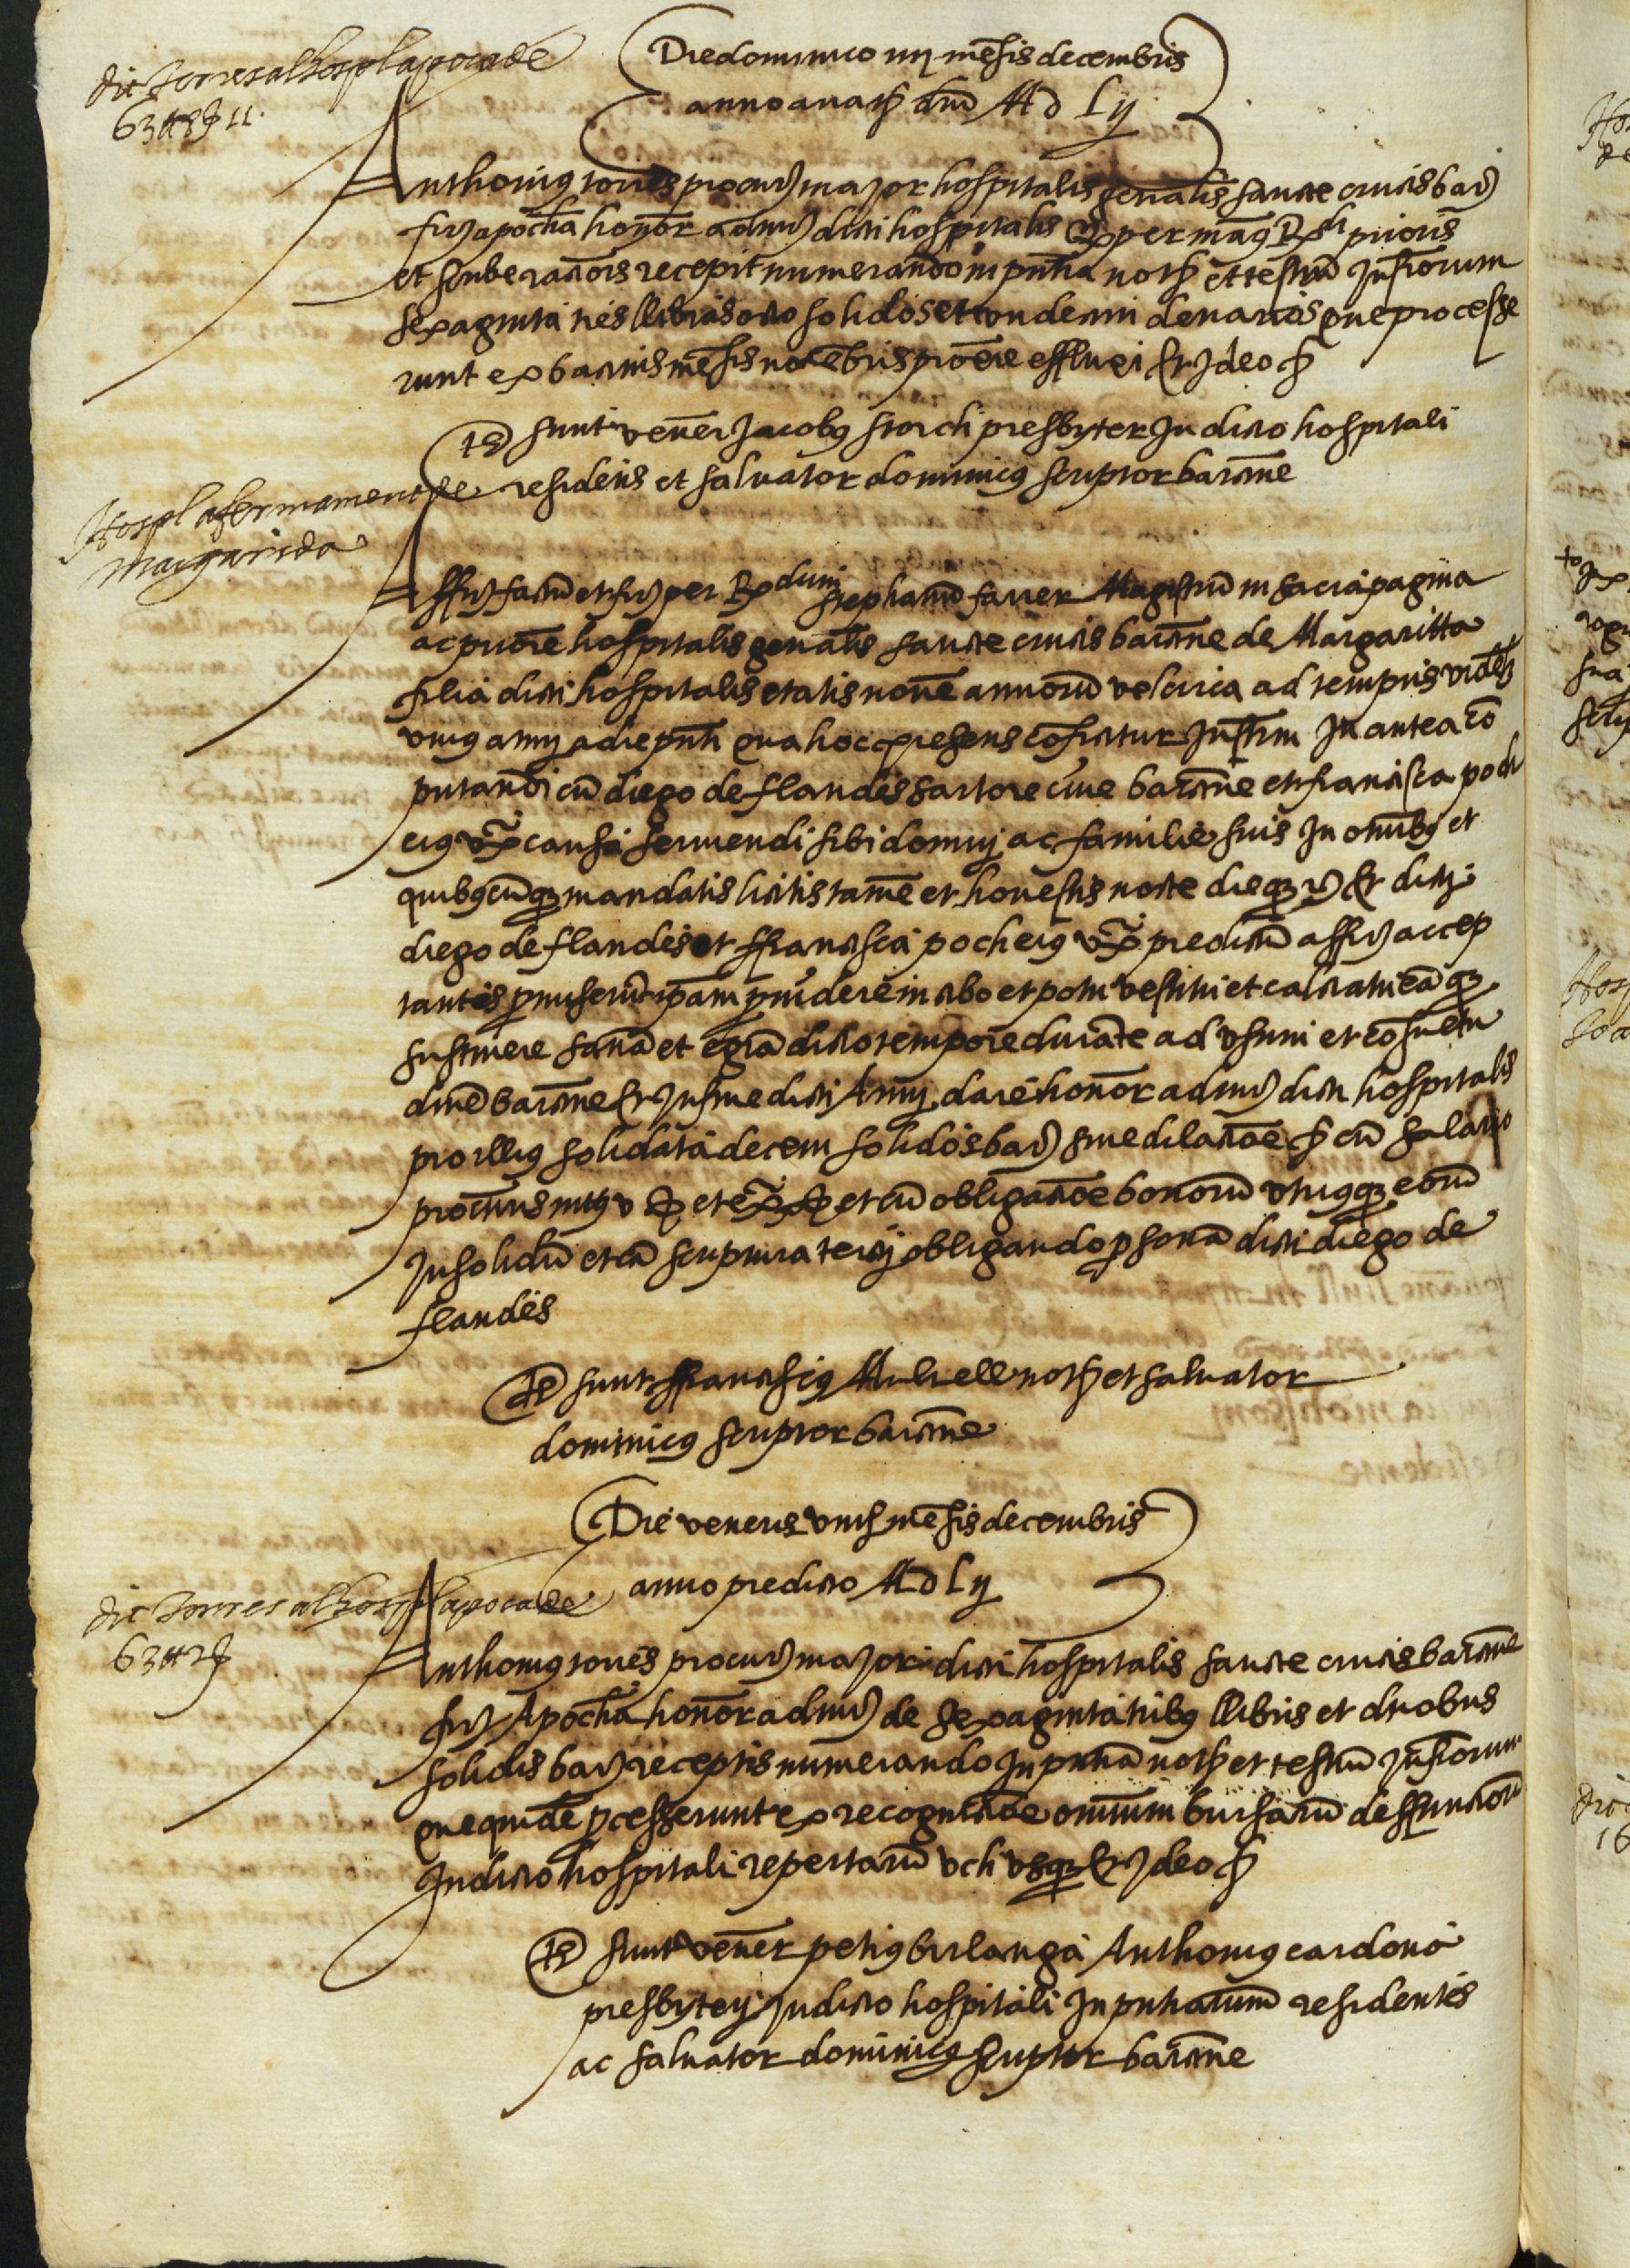 dit torres al hospl apoca de
63 ₶ 8 ß 11.
Die dominico iiij mesis decembris
anno a nat dni M D Lij
Anthonius torres procur major hospitalis genalis sancte crucis bar
fir apocha honor admir dicti hospitalis per mag prioris
et recepit numerando in pntia not et testium Infrorum
sexaginta tres llibras octo solidos et undecim denarios que processe
runt ex bacinis mesis novebris proxie effluxi Et Ideo &
ts sunt vener Jacobus storch presbyter In dicto hospitali
residens et salvator dominicus scriptor barcine
Hospl afermament de
margarida
Affir factu et fir per Rdum stephanu farrer Magistru in sacra pagina
ac priore hospitalis genalis sancte crucis barcine de Margaritta
filia dicti hospitalis etatis nove annoru vel circa ad tempus videlz
unius anny a die pnti qua hoc presens coficitur Instrm In antea co
putandi cu diego de flandes sartore cive barcine et francisca poch
eius ux causa serviendi sibi domuj ac familie suis In omibus et
quibuscuqz mandatis licitis tame et honestis nocte dieqz Et dicti
diego de flandes et ffrancisca poch eius ux predicta affir accep
tantes pmiserut ipam pvidere in cibo et potu vestitu et calciatu eaqz
sustinere sana et egra dicto tempore durate ad usum et cosuetu
dine barcine Et In fine dicti Anny dare honor admir dicti hospitalis
pro illius solidata decem solidos bar sine dilacioe & cu salario
procuris intus v ß et extra x ß et cu obligacioe bonoru utriusqz eoru
In solidu et cu scriptura tercij obligando psona dicti diego de
flandes
ts sunt ffranciscus Mulnell not et salvator
dominicus scriptor barcine
Die veneris viiij mesis decembris
anno predicto M D Lij
dit torres al hospl apoca de
63 ₶ 2 ß
Anthonius torres procur major dicti hospitalis sancte crucis barcine
fir Apocha honor admir de sexaginta tribus llibris et duobus
solidis bar receptis numerando In pntia not et testium Infrorum
que quide pcesserunt ex recognicioe omnium bursaru deffunctoru
In dicto hospitali repertaru usqz Et Ideo &
ts sunt vener petrus birlanga Anthonius cardona
presbyterj In dicto hospitali In pntiarum residentes
ac salvator dominicus scriptor barcine